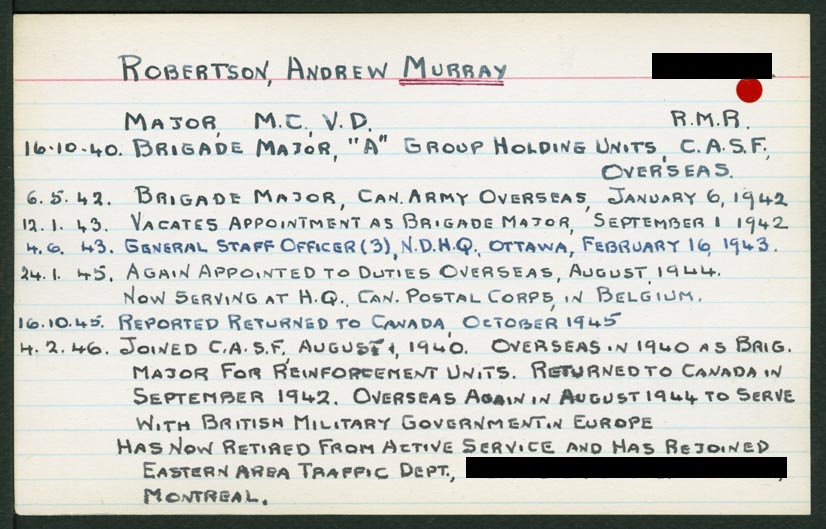 ROBERTSON, ANDREW MURRAY
MAJOR, M.C., V.D. R.M.R.
16.10.40. BRIGADE MAJOR, "A" GROUP HOLDING UNITS, C.A.S.F.,
OVERSEAS.
6.5.42. BRIGADE MAJOR, CAN. ARMY OVERSEAS, JANUARY 6, 1942
12.1.43. VACATES APPOINTMENT AS BRIGADE MAJOR, SEPTEMBER 1 1942
4.6.43. GENERAL STAFF OFFICER (3), N.D.H.Q., OTTAWA, FEBRUARY 16, 1943.
24.1.45. AGAIN APPOINTED TO DUTIES OVERSEAS, AUGUST, 1944.
NOW SERVING AT H.Q., CAN. POSTAL CORPS, IN BELGIUM.
16.10.45. REPORTED RETURNED TO CANADA, OCTOBER 1945
4.2.46. JOINED C.A.S.F., AUGUST 1, 1940. OVERSEAS IN 1940 AS BRIG.
MAJOR FOR REINFORCEMENT UNITS. RETURNED TO CANADA IN
SEPTEMBER 1942. OVERSEAS AGAIN IN AUGUST 1944 TO SERVE
WITH BRITISH MILITARY GOVERNMENT IN EUROPE
HAS NOW RETIRED FROM ACTIVE SERVICE AND HAS REJOINED
EASTERN AREA TRAFFIC DEPT.,
MONTREAL.